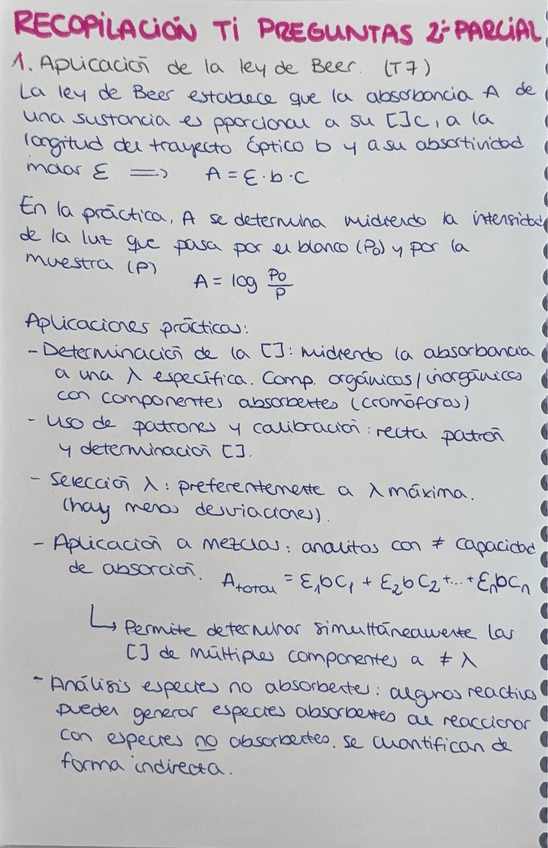 RECOPILACIÓN TI PREGUNTAS 2º PARCIAL
1. Aplicación de la ley de Beer. (T7)
La ley de Beer establece que la absorbancia A de
una sustancia es pporcional a su []C, a la
longitud del trayecto óptico b y a su absortividad
molar ε => A = ε·b·C
En la práctica, A se determina midiendo la intensidad
de la luz que pasa por el blanco (P₀) y por la
muestra (P)
A = log P₀/P
Aplicaciones prácticas:
- Determinación de la []: midiendo la absorbancia
a una λ específica. Comp. orgánicos/inorgánicos
con componentes absorbentes (cromóforos)
- Uso de patrones y calibración: recta patrón
y determinación [].
- Selección λ: preferentemente a λ máxima.
(hay menos desviaciones).
- Aplicación a mezclas: analitos con ≠ capacidad
de absorción. A total = ε₁bC₁ + ε₂bC₂ +...+ εₙbCₙ
↳ Permite determinar simultáneamente las
[] de múltiples componentes a ≠ λ
- Análisis especies no absorbentes: algunos reactivos
pueden generar especies absorbentes al reaccionar
con especies no absorbentes. Se cuantifican de
forma indirecta.